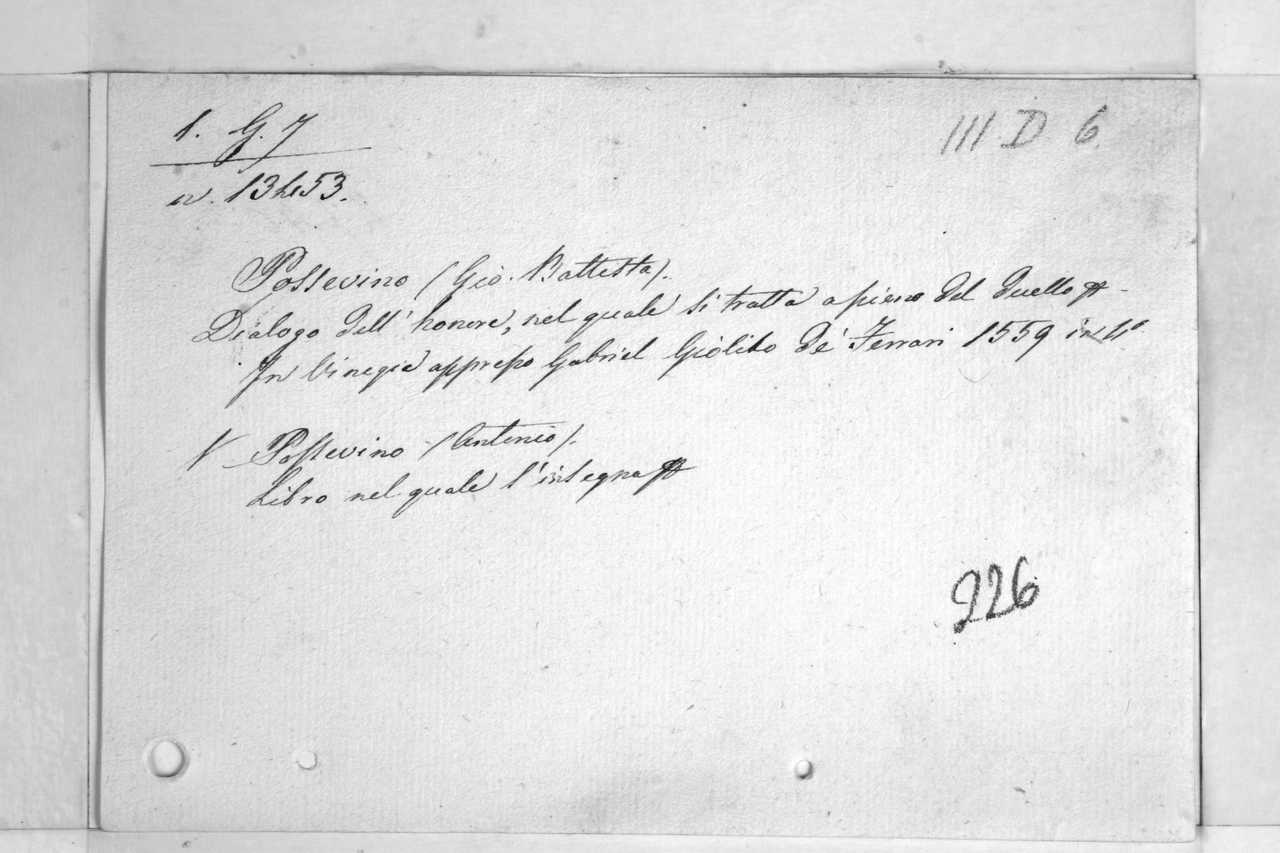 1. G. 7
III D 6.
n. 13453.
Possevino (Gio. Battista).
Dialogo dell' honore, nel quale si tratta a pieno del duello
In Vinegia appresso Gabriel Giolito de' Ferrari 1559 in 4°
V Possevino (Antonio).
Libro nel quale s'insegna
226